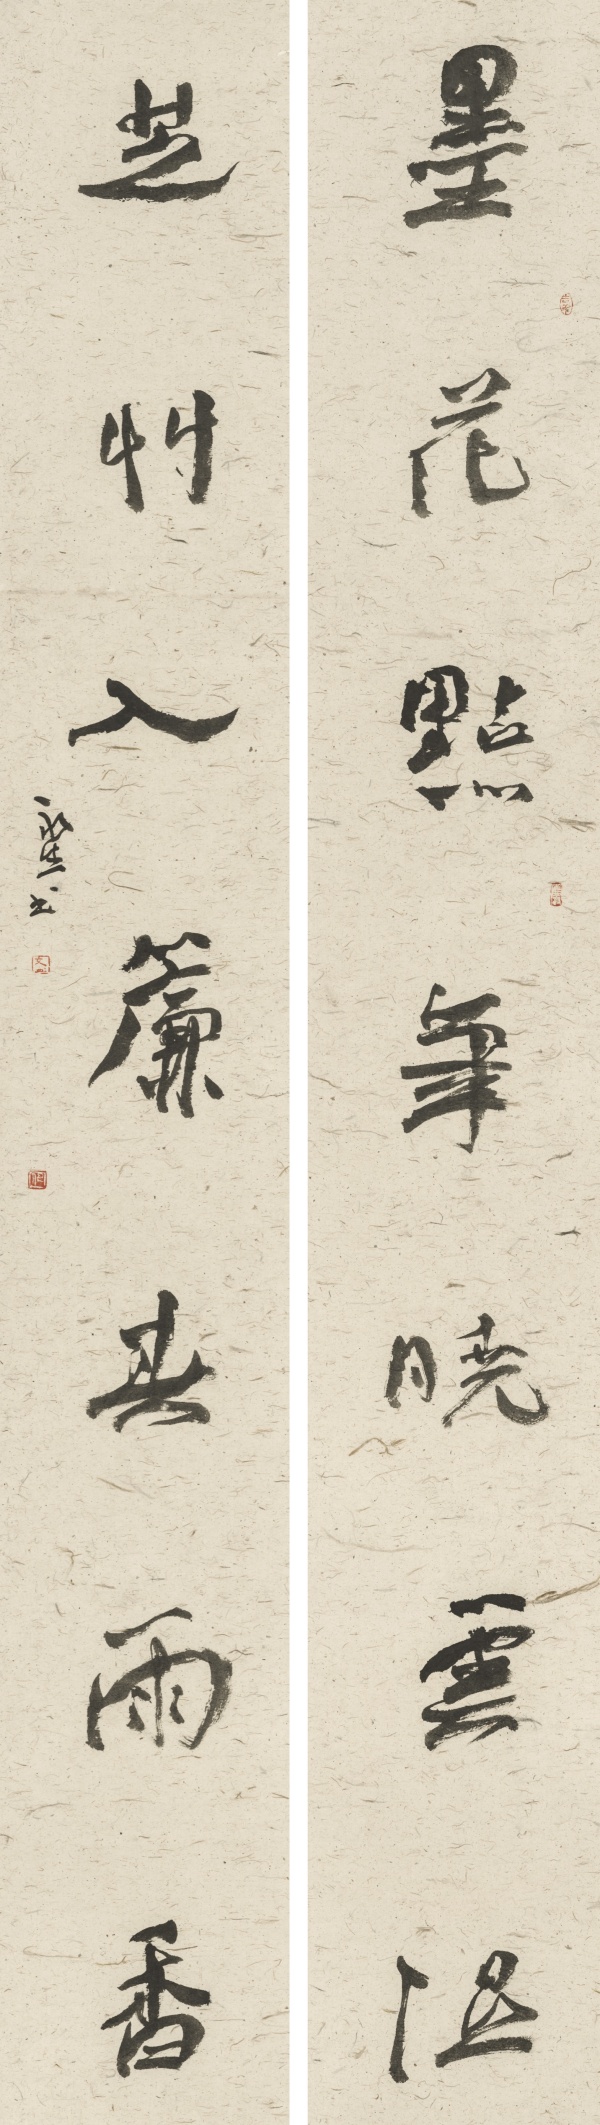 墨花點筆曉雲溼
芝艸入簾春雨香